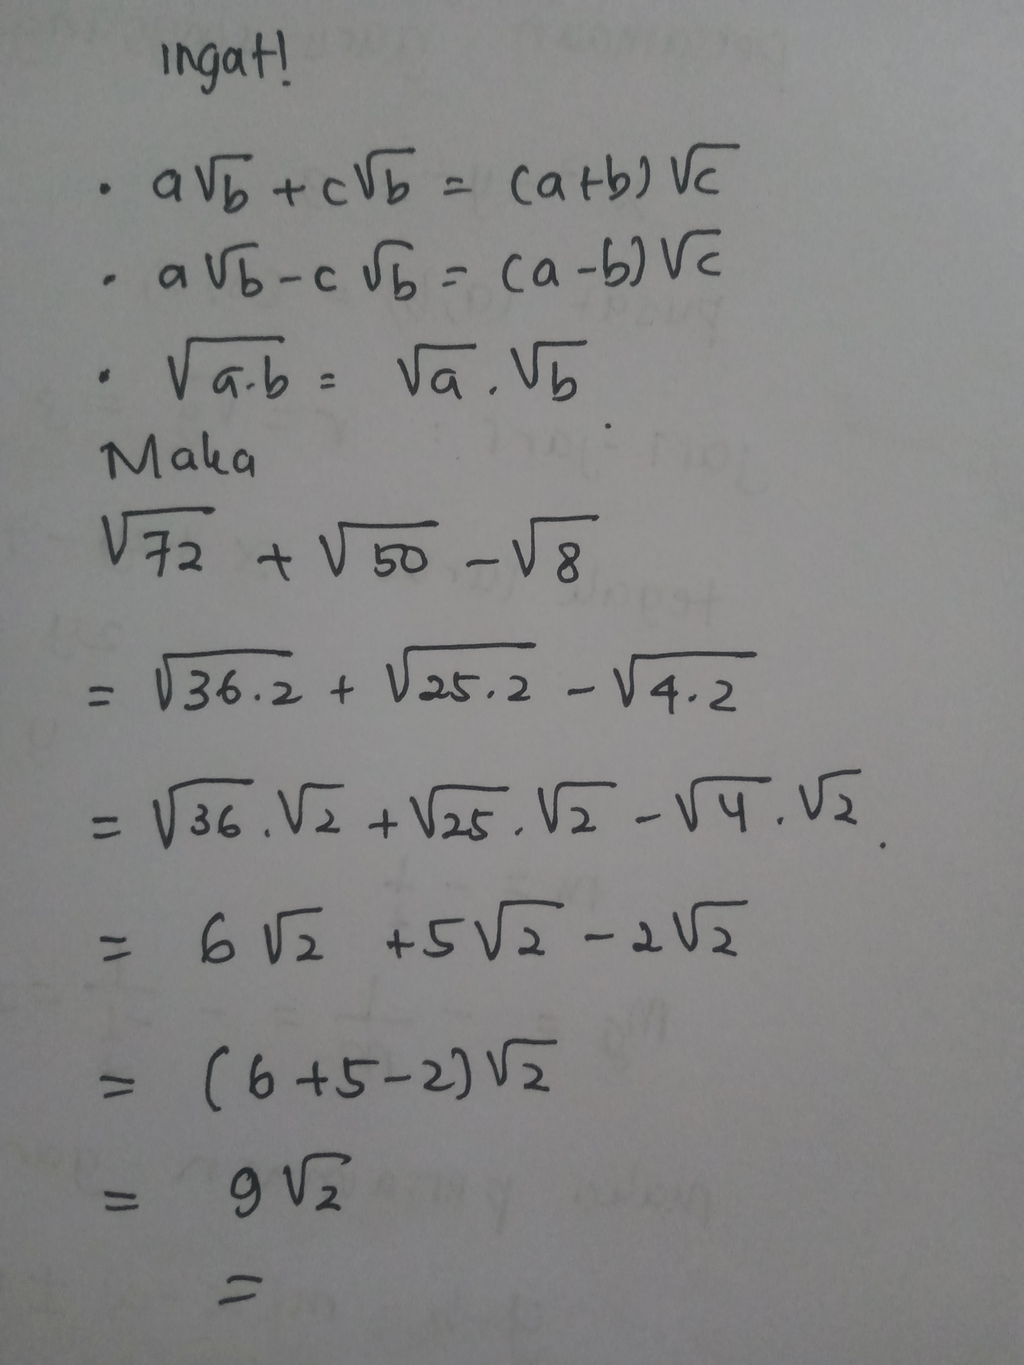 ingat!
• a√b + c√b = (a+b)√c
• a√b - c√b = (a-b)√c
• √a.b = √a . √b
Maka
√72 + √50 - √8
= √36.2 + √25.2 - √4.2
= √36 . √2 + √25 . √2 - √4 . √2
= 6√2 + 5√2 - 2√2
= (6+5-2)√2
= 9√2
=